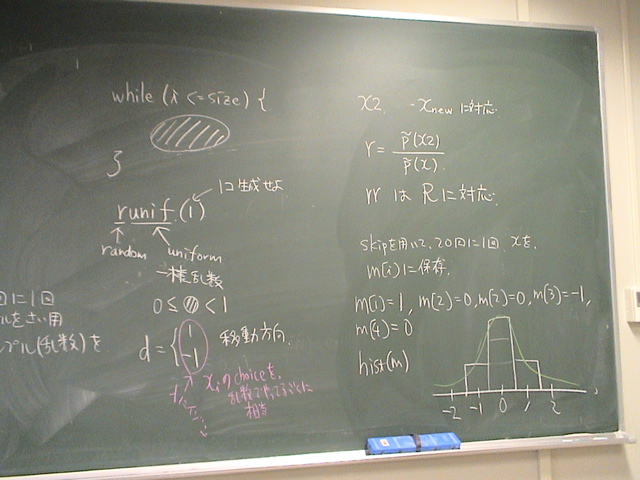 while (i <= size) {
}
runif (1)
1コ生成せよ
random uniform
一様乱数
0 ≤ < 1
d = { 1
-1
移動方向.
xiのchoiceを.
相当
回に1回
プル(乱数)を
x2. - xnew に対応.
r = p̃(x2)
p̃(x).
rr は R に対応.
skipを用いて, 20回に1回 xを.
m[i]に保存.
m(1)=1, m(2)=0, m(2)=0, m(3)=-1,
m(4)=0
hist(m)
-2 -1 0 1 2